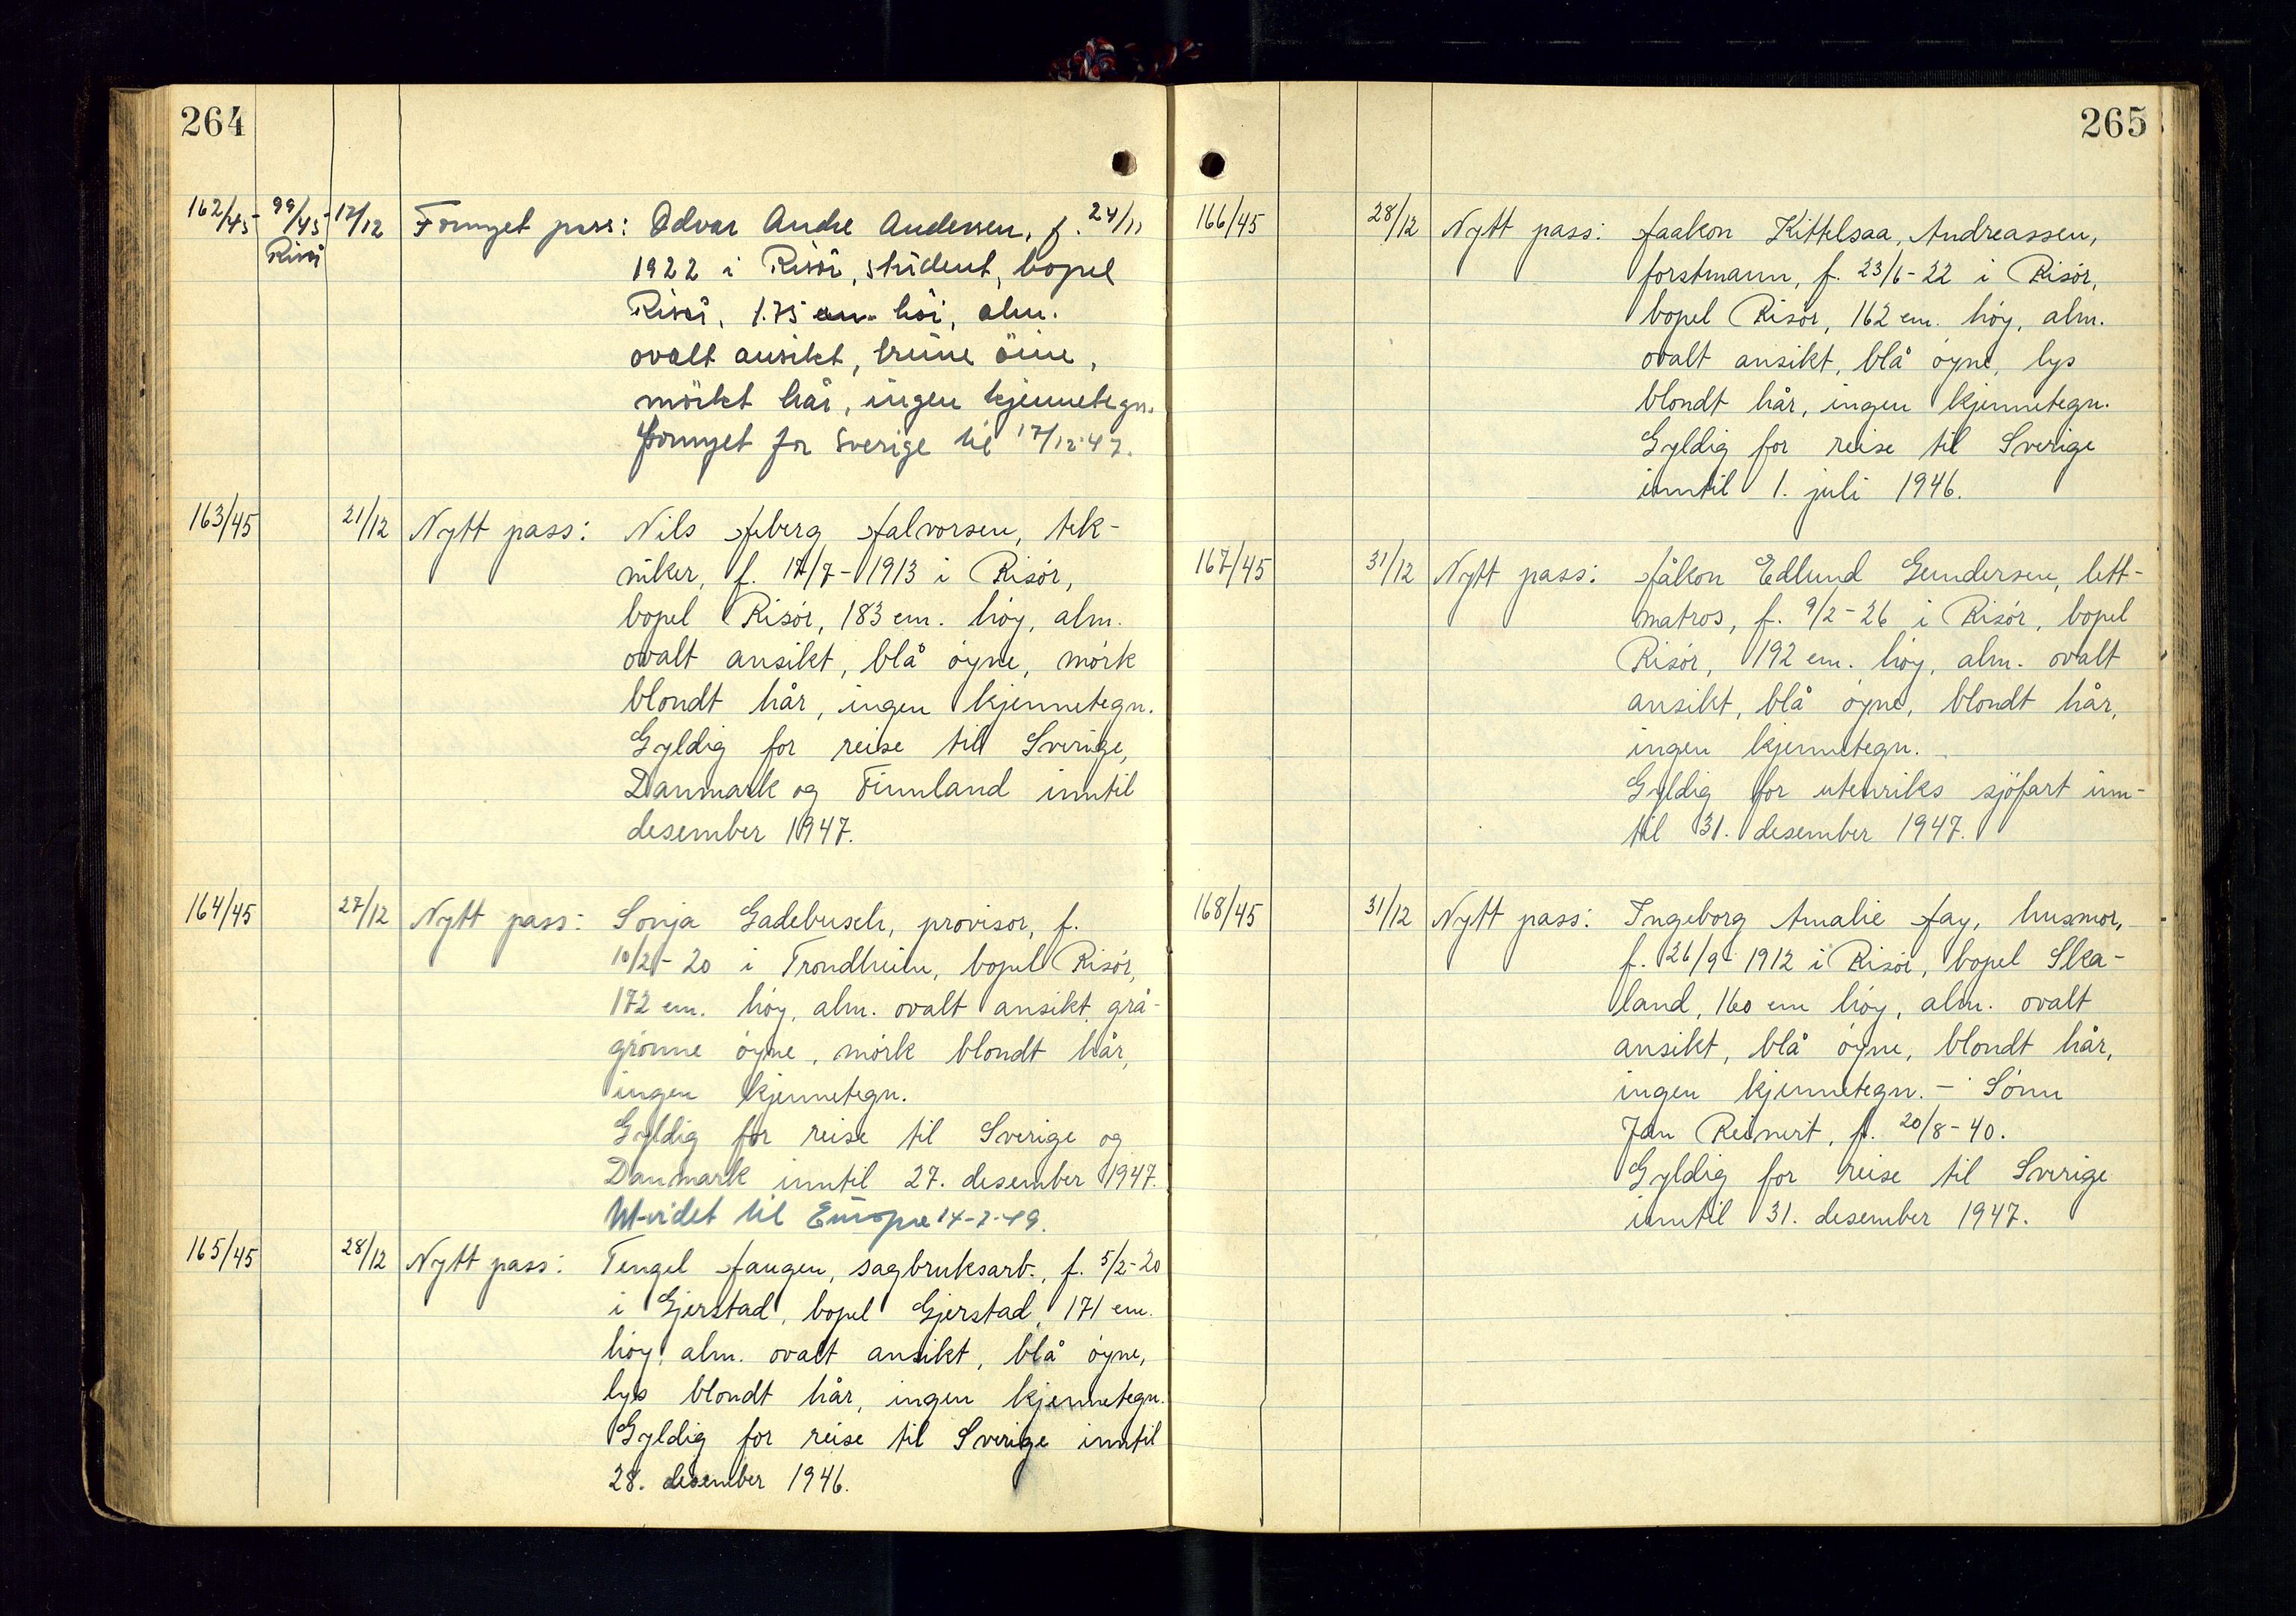 264
162/45 99/45 17/12 Fornyet pass: Odvar Andre Andersen, f. 24/11
Risör 1922 i Risör, student, bopel
Risör, 1.75 cm. höi, alm.
ovalt ansikt, brune öine,
mörkt hår, ingen kjennetegn.
Fornyet for Sverige til 17/12-47.
163/45 21/12 Nytt pass: Nils Heberg Halvorsen, tek-
niker, f. 17/7-1913 i Risör,
bopel Risör, 183 cm. höy, alm.
ovalt ansikt, blå öyne, mörk
blondt hår, ingen kjennetegn.
Gyldig for reise til Sverige,
Danmark og Finnland inntil
desember 1947.
164/45 27/12 Nytt pass: Sonja Gadebusch, provisor, f.
10/2-20 i Trondheim, bopel Risör,
172 cm. höy, alm. ovalt ansikt, grå-
grönne öyne, mörk blondt hår,
ingen kjennetegn.
Gyldig for reise til Sverige og
Danmark inntil 27. desember 1947.
Utvidet til Europa 14-2-49.
165/45 28/12 Nytt pass: Tengel Haugen, sagbruksarb., f. 5/2-20
i Gjerstad, bopel Gjerstad, 171 cm.
höy, alm. ovalt ansikt, blå öyne,
lys blondt hår, ingen kjennetegn.
Gyldig for reise til Sverige inntil
28. desember 1946.
265
166/45 28/12 Nytt pass: Haakon Kittelsaa, Andreassen,
forstmann, f. 23/6-22 i Risör,
bopel Risör, 162 cm. höy, alm.
ovalt ansikt, blå öyne, lys
blondt hår, ingen kjennetegn.
Gyldig for reise til Sverige
inntil 1. juli 1946.
167/45 31/12 Nytt pass: Håkon Edlund Gundersen, lett-
matros, f. 9/2-26 i Risör, bopel
Risör, 192 cm. höy, alm. ovalt
ansikt, blå öyne, blondt hår,
ingen kjennetegn.
Gyldig for utenriks sjöfart inn-
til 31. desember 1947.
168/45 31/12 Nytt pass: Ingeborg Amalie Hay, husmor,
f. 26/9-1912 i Risör, bopel Ska-
land, 160 cm höy, alm. ovalt
ansikt, blå öyne, blondt hår,
ingen kjennetegn. - Sönn
Jan Reinert, f. 20/8-40.
Gyldig for reise til Sverige
inntil 31. desember 1947.